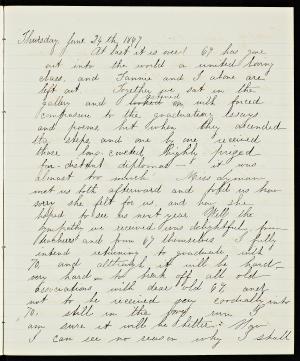 Thursday June 24th, 1867
At last it is over! 67 has gone
out into the world a united loving
class, and Fannie and I alone are
left out. Together we sat in the
gallery and listened on, with forced
composure to the graduating essays
and poems but when they ascended
the steps and one by one received
those long coveted highly prized
diplomas it was
almost too much. Miss Lyman
met us both afterward and told us how
sorry she felt for us and how she
hoped to see us next year. Well the
sympathy we received was delightful from
teachers and from 67 themselves. I fully
intend returning to graduate with
70 and although it will be hard
very hard to break off all old
associations with dear old 67 and
not to be received very cordially into
70, still in the long run I
am sure it will be better.
I can see no reason why I shall